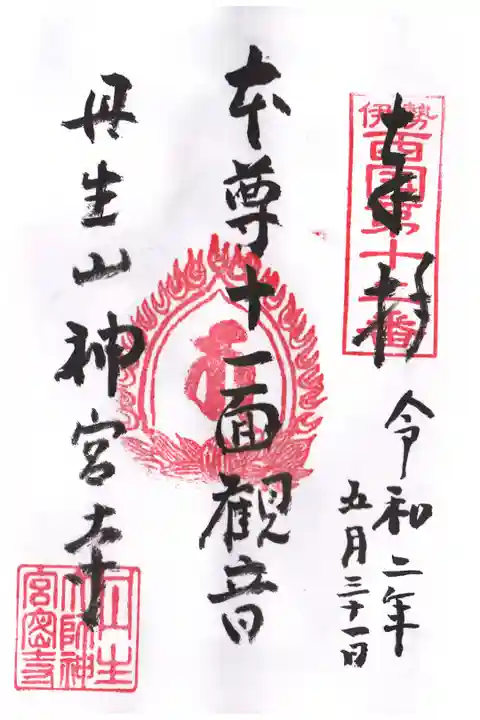 奉拝
伊勢
西国第十一番
令和二年
五月三十一日
本尊十一面観音
丹生山神宮寺
丹生
大師神
宮寺